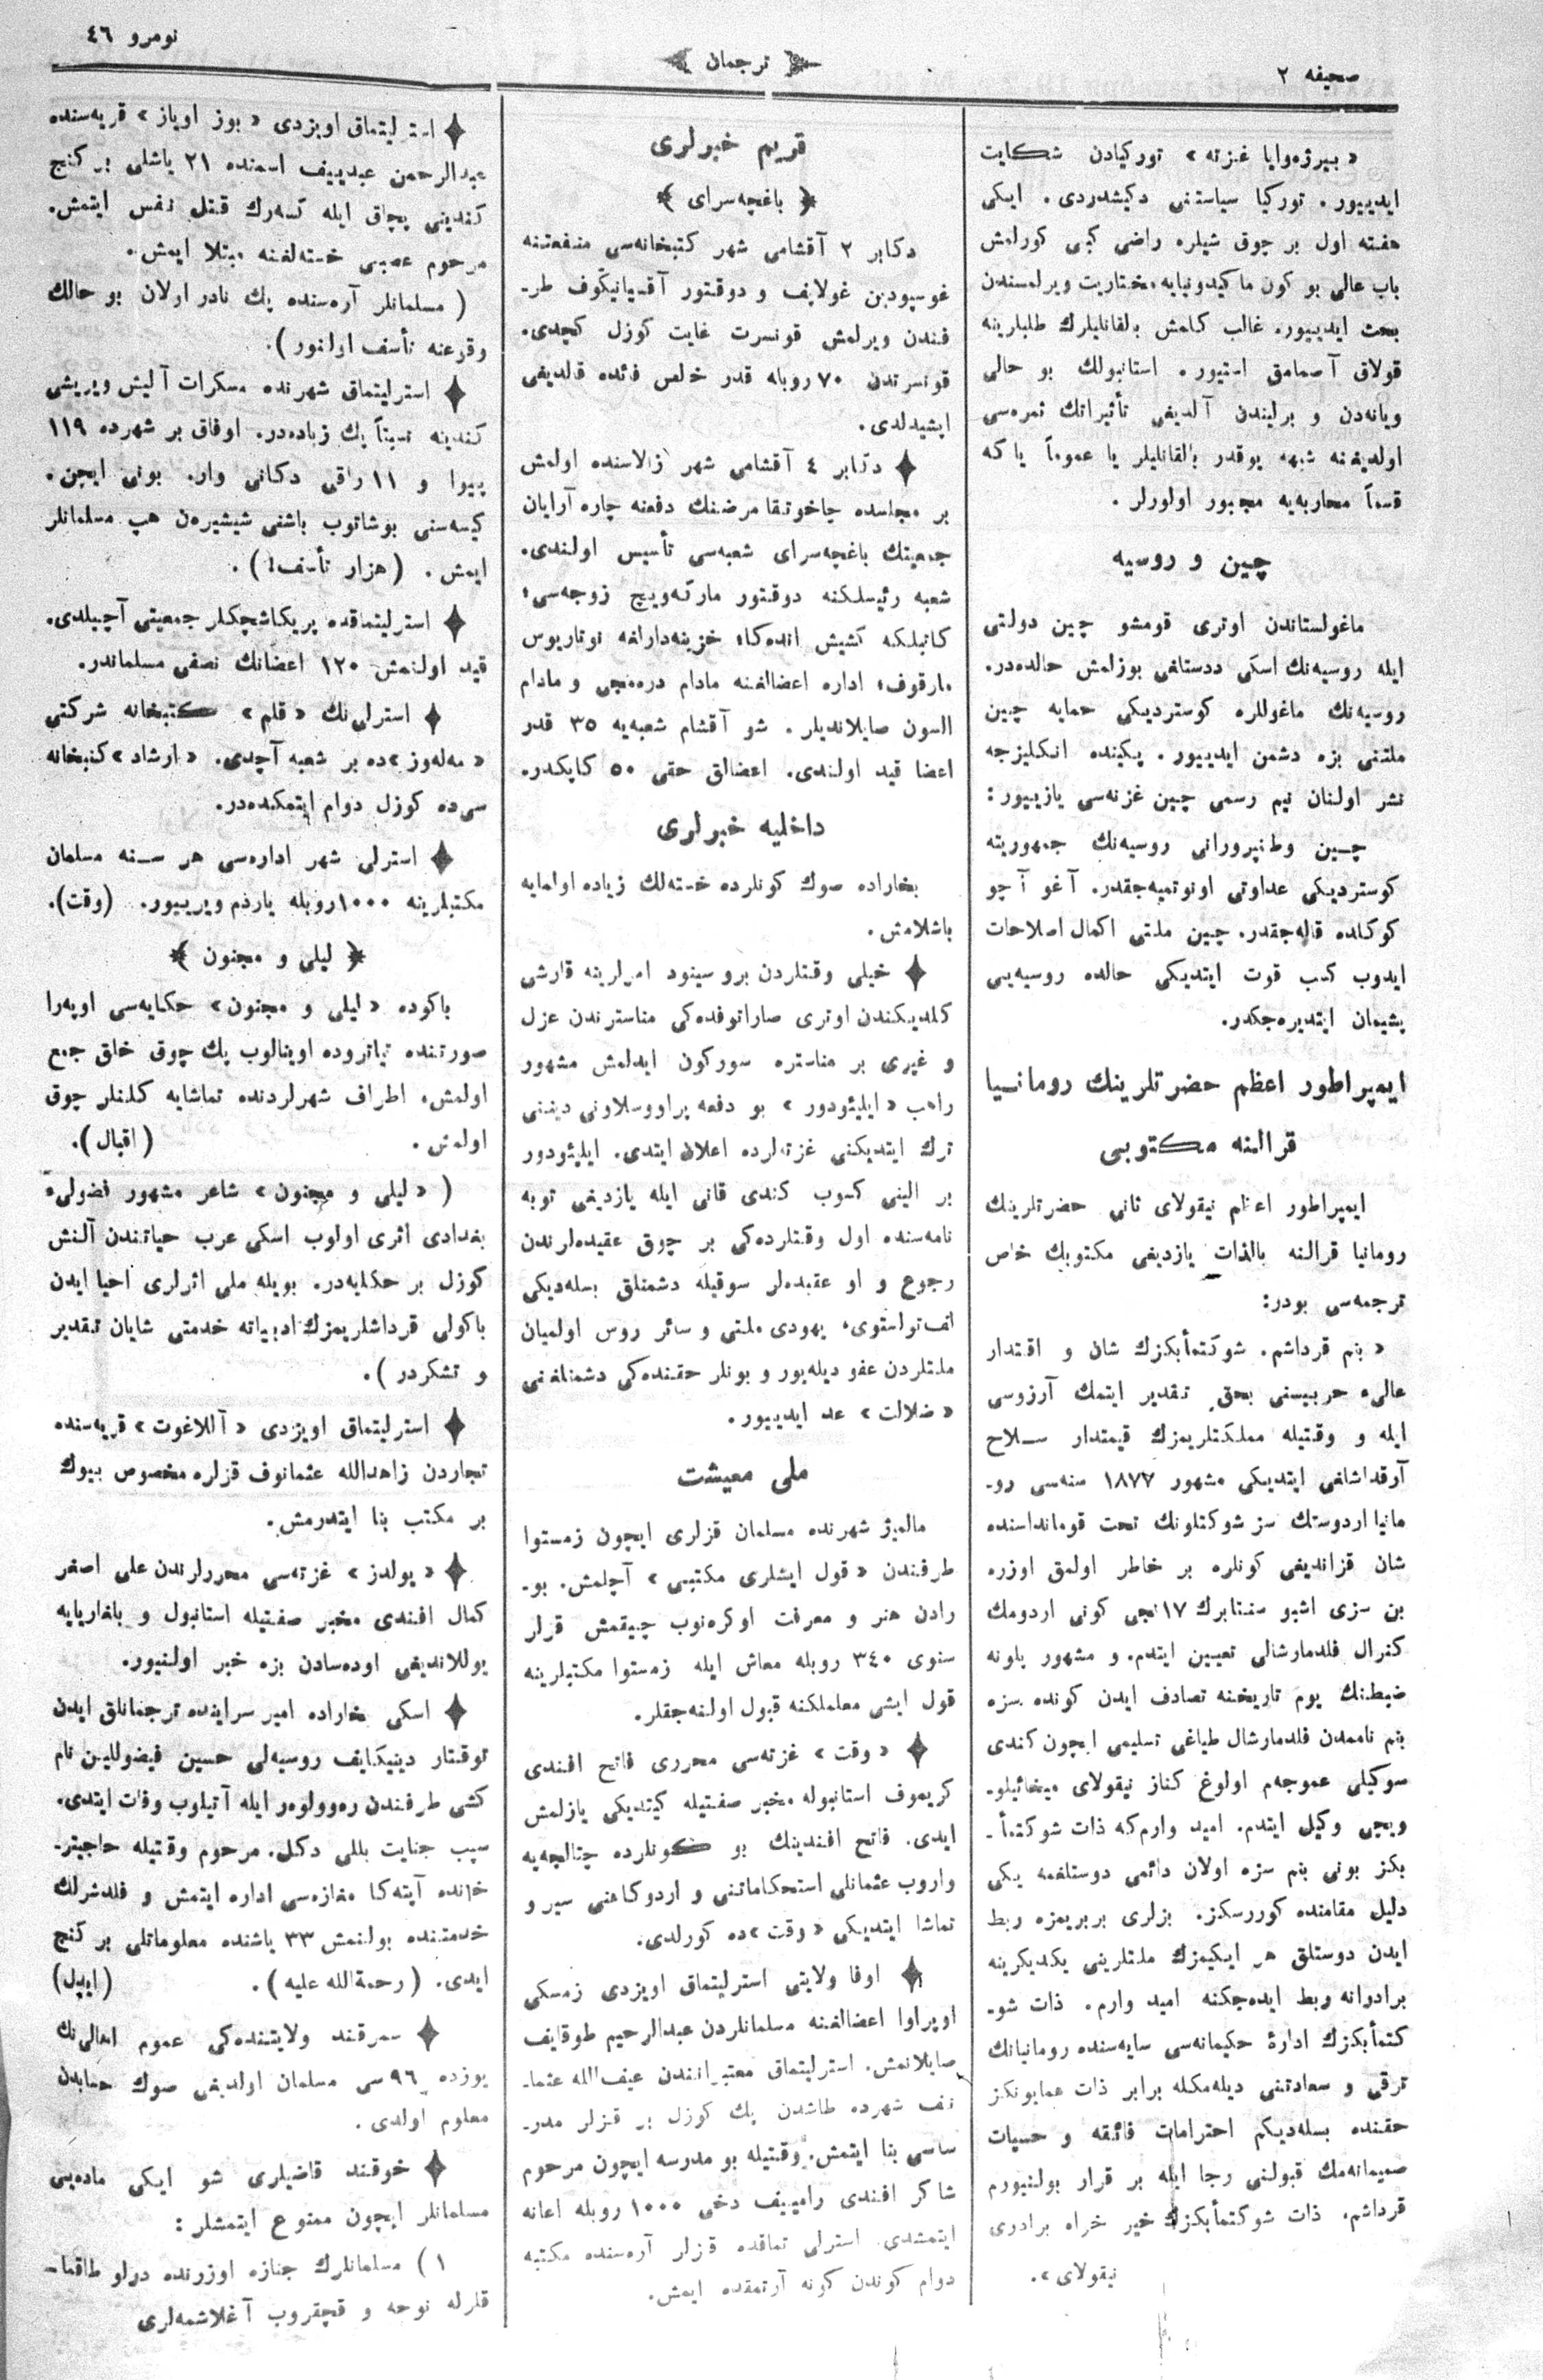 صحیفه ٢
ترجمان
نومرو ٤٦
« بیرژه‌وایا غزته » تورکیادن شکایت
ایدییور. تورکیا سیاستنی دکیشدردی. ایکی
هفته اول بر چوق شیلره راضی کبی کورلمش
باب عالی بو کون ماکیدونیایه مختاریت ویرلمسندن
بحث ایدییور. غالب کلمش بالقانلیلرك طلبلرینه
قولاق آصمامق استیور. استانبولك بو حالی
ویانه‌دن و برلیندن آلدیغی تأثیراتك ثمره‌سی
اولدیغنه شبهه یوقدر بالقانلیلر یا عموماً یا که
قسماً محاربه‌یه مجبور اولورلر.
چین و روسیه
ماغولستاندن اوتری قومشو چین دولتی
ایله روسیه‌نك اسکی دوستلغی بوزلمش حالده‌در.
روسیه‌نك ماغوللره کوستردیکی حمایه چین
ملتنی بزه دشمن ایدییور. پکینده انکلیزجه
نشر اولنان نیم رسمی چین غزته‌سی یازییور:
چین وطنپرورانی روسیه‌نك جمهوریته
کوستردیکی عداوتی اونوتمیه‌جقدر. آغو آجو
کوکلده قاله‌جقدر. چین ملتی اکمال اصلاحات
ایدوب کسب قوت ایتدیکی حالده روسیه‌یی
پشیمان ایتدیره‌جکدر.
ایمپراطور اعظم حضرتلرینك رومانیا
قرالنه مکتوبی
ایمپراطور اعظم نیقولای ثانی حضرتلرینك
رومانیا قرالنه بالذات یازدیغی مکتوبك خاص
ترجمه‌سی بودر:
« بنم قرداشم. شوکتمأبکزك شان و اقتدار
عالیء حربیسنی بحق تقدیر ایتمك آرزوسی
ایله و وقتیله مملکتلریمزك قیمتدار سلاح
آرقداشلغی ایتدیکی مشهور ١٨٧٧ سنه‌سی رو-
مانیا اردوسنك سز شوکتلونك تحت قوماندا‌سنده
شان قزاندیغی کونلره بر خاطر اولمق اوزره
بن سزی اشبو سنتابرك ١٧نجی کونی اردومك
کنرال فلدمارشالی تعیین ایتدم. و مشهور پلونه
ضبطنك یوم تاریخنه تصادف ایدن کونده سزه
بنم نامدن فلدمارشال طیاغی تسلیمی ایچون کندی
سوکیلی عموجه‌م اولوغ کناز نیقولای میخائیلو-
ویچی وکیل ایتدم. امید وارم که ذات شوکتمأ-
بکز بونی بنم سزه اولان دائمی دوستلغمه یکی
دلیل مقامنده کوررسکز. بزلری بربریمزه ربط
ایدن دوستلق هر ایکیمزك ملتلرینی یکدیکرینه
برادرانه ربط ایده‌جکنه امید وارم. ذات شو-
کتمأبکزك ادارهٔ حکیمانه‌سی سایه‌سنده رومانیانك
ترقی و سعادتنی دیله‌مکله برابر ذات همایونکز
حقنده بسله‌دیکم احترامات فائقه و حسیات
صمیمانه‌مك قبولنی رجا ایله بر قرار بولنیورم
قرداشم. ذات شوکتمأبکزك خیر خراه برادری
نیقولای ».
قریم خبرلری
باغچه‌سرای
دکابر ٢ آقشامی شهر کتبخانه‌سی منفعتنه
غوسپودین غولایف و دوقتور آقسیانیکوف طر-
فندن ویرلمش قونسرت غایت کوزل کچدی.
قونسرتدن ٧٠ روبله قدر خالص فائده قالدیغی
ایشیدلدی.
دکابر ٤ آقشامی شهر زالاسنده اولمش
بر مجلسده چاخوتقا مرضنك دفعنه چاره آرایان
جمعیتك باغچه‌سرای شعبه‌سی تأسیس اولندی.
شعبه رئیسلکنه دوقتور مارکه‌ویچ زوجه‌سی؛
کاتبلکه کشیش انده‌کا؛ خزینه‌دارلغه نوتاریوس
مارقوف؛ اداره اعضالغنه مادام دره‌منجی و مادام
السون صایلاندیلر. شو آقشام شعبه‌یه ٣٥ قدر
اعضا قید اولندی. اعضالق حقی ٥٠ کاپکدر.
داخلیه خبرلری
بخاراده صوك کونلرده خسته‌لك زیاده اولمایه
باشلامش.
خیلی وقتلردن برو سینود امرلرینه قارشی
کلمدیکندن اوتری صاراتوفده‌کی مناستردن عزل
و غیری بر مناستره سورکون ایدلمش مشهور
راهب « ایلیئودور » بو دفعه پراووسلاونی دیننی
ترك ایتدیکنی غزته‌لرده اعلان ایتدی. ایلیئودور
بر الینی کسوب کندی قانی ایله یازدیغی توبه
نامه‌سنده اول وقتلرده‌کی بر چوق عقیده‌لرندن
رجوع و او عقیده‌لر سوقیله دشمنلق بسله‌دیکی
لف تولستوی، یهودی ملتی و سائر روس اولمیان
ملتلردن عفو دیله‌یور و بونلر حقنده‌کی دشمنلغنی
« ضلالت » عد ایدییور.
ملی معیشت
مالمیژ شهرنده مسلمان قزلری ایچون زمستوا
طرفندن « قول ایشلری مکتبی » آچلمش. بو-
رادن هنر و معرفت اوکره‌نوب چیقمش قزلر
سنوی ٣٤٠ روبله معاش ایله زمستوا مکتبلرینه
قول ایشی معلملکنه قبول اولنه‌جقلر.
« وقت » غزته‌سی محرری فاتح افندی
کریموف استانبوله مخبر صفتیله کیتدیکی یازلمش
ایدی. فاتح افندینك بو کونلرده چتالجه‌یه
واروب عثمانلی استحکاماتنی و اردوکاهنی سیر و
تماشا ایتدیکی « وقت »ده کورلدی.
اوفا ولایتی استرلیتماق اویزدی زمسکی
اوپراوا اعضالغنه مسلمانلردن عبدالرحیم طوقایف
صایلانمش. استرلیتماق معتبرانندن عیف الله عثما-
نف شهرده طاشدن پك کوزل بر قزلر مدر-
ساسی بنا ایتمش. وقتیله بو مدرسه ایچون مرحوم
شاکر افندی رامییف دخی ١٠٠٠ روبله اعانه
ایتمشدی. استرلی تماقده قزلر آره‌سنده مکتبه
دوام کوندن کونه آرتمقده ایمش.
استرلیتماق اویزدی « بوز اویاز » قریه‌سنده
عبدالرحمن عبدییف اسمنده ٢١ یاشلی بر کنج
کندینی پچاق ایله کسه‌رك قتل نفس ایتمش.
مرحوم عصبی خسته‌لغنه مبتلا ایمش.
( مسلمانلر آره‌سنده پك نادر اولان بو حالك
وقوعنه تأسف اولنور ).
استرلیتماق شهرنده مسکرات آلیش ویریشی
کندینه نسبتاً پك زیاده‌در. اوفاق بر شهرده ١١٩
پیوا و ١١ راقی دکانی وار. بونی ایچن.
کیسه‌سنی بوشاتوب باشنی شیشیره‌ن هپ مسلمانلر
ایمش. (هزار تأسف!).
استرلیتماقده پریکاشچکلر جمعیتی آچیلدی.
قید اولنمش ١٢٠ اعضانك نصفی مسلماندر.
استرلی‌نك « قلم » کتبخانه شرکتی
« مه‌له‌وز »ده بر شعبه آچدی. « ارشاد » کتبخانه
سی‌ده کوزل دوام ایتمکده‌در.
استرلی شهر اداره‌سی هر سنه مسلمان
مکتبلرینه ١٠٠٠ روبله یاردم ویرییور. (وقت).
لیلی و مجنون
باکوده « لیلی و مجنون » حکایه‌سی اوپه‌را
صورتنده تیاتروده اوینالوب پك چوق خلق جمع
اولمش، اطراف شهرلردنده تماشایه کلنلر چوق
اولمش. (اقبال).
( « لیلی و مجنون » شاعر مشهور فضولیء
بغدادی اثری اولوب اسکی عرب حیاتندن آلنمش
کوزل بر حکایه‌در. بویله ملی اثرلری احیا ایدن
باکولی قرداشلریمزك ادبیاته خدمتی شایان تقدیر
و تشکردر ).
استرلیتماق اویزدی « آللاغوت » قریه‌سنده
تجاردن زاهدالله عثمانوف قزلره مخصوص بیوك
بر مکتب بنا ایتدرمش.
« یولدز » غزته‌سی محررلرندن علی اصغر
کمال افندی مخبر صفتیله استانبول و بلغاریایه
یوللاندیغی اوده‌سادن بزه خبر اولنیور.
اسکی بخاراده امیر سراینده ترجمانلق ایدن
توقتار دینیکایف روسیه‌لی حسین فیضوللین نام
کشی طرفندن ره‌وولوه‌ر ایله آتیلوب وفات ایتدی.
سبب جنایت بللی دکل. مرحوم وقتیله حاجیتر-
خانده آیته‌کا مغازه‌سی اداره ایتمش و فلدشرلك
خدمتنده بولنمش ٣٣ یاشنده معلوماتلی بر کنج
ایدی. ( رحمة الله علیه ). (ایدل)
سمرقند ولایتنده‌کی عموم اهالی‌نك
یوزده ٩٦ سی مسلمان اولدیغی صوك حسابدن
معلوم اولدی.
خوقند قاضیلری شو ایکی ماده‌یی
مسلمانلر ایچون ممنوع ایتمشلر:
١) مسلمانلرك جنازه اوزرنده درلو طاقما-
قلرله نوحه و قچقروب آغلاشمه‌لری